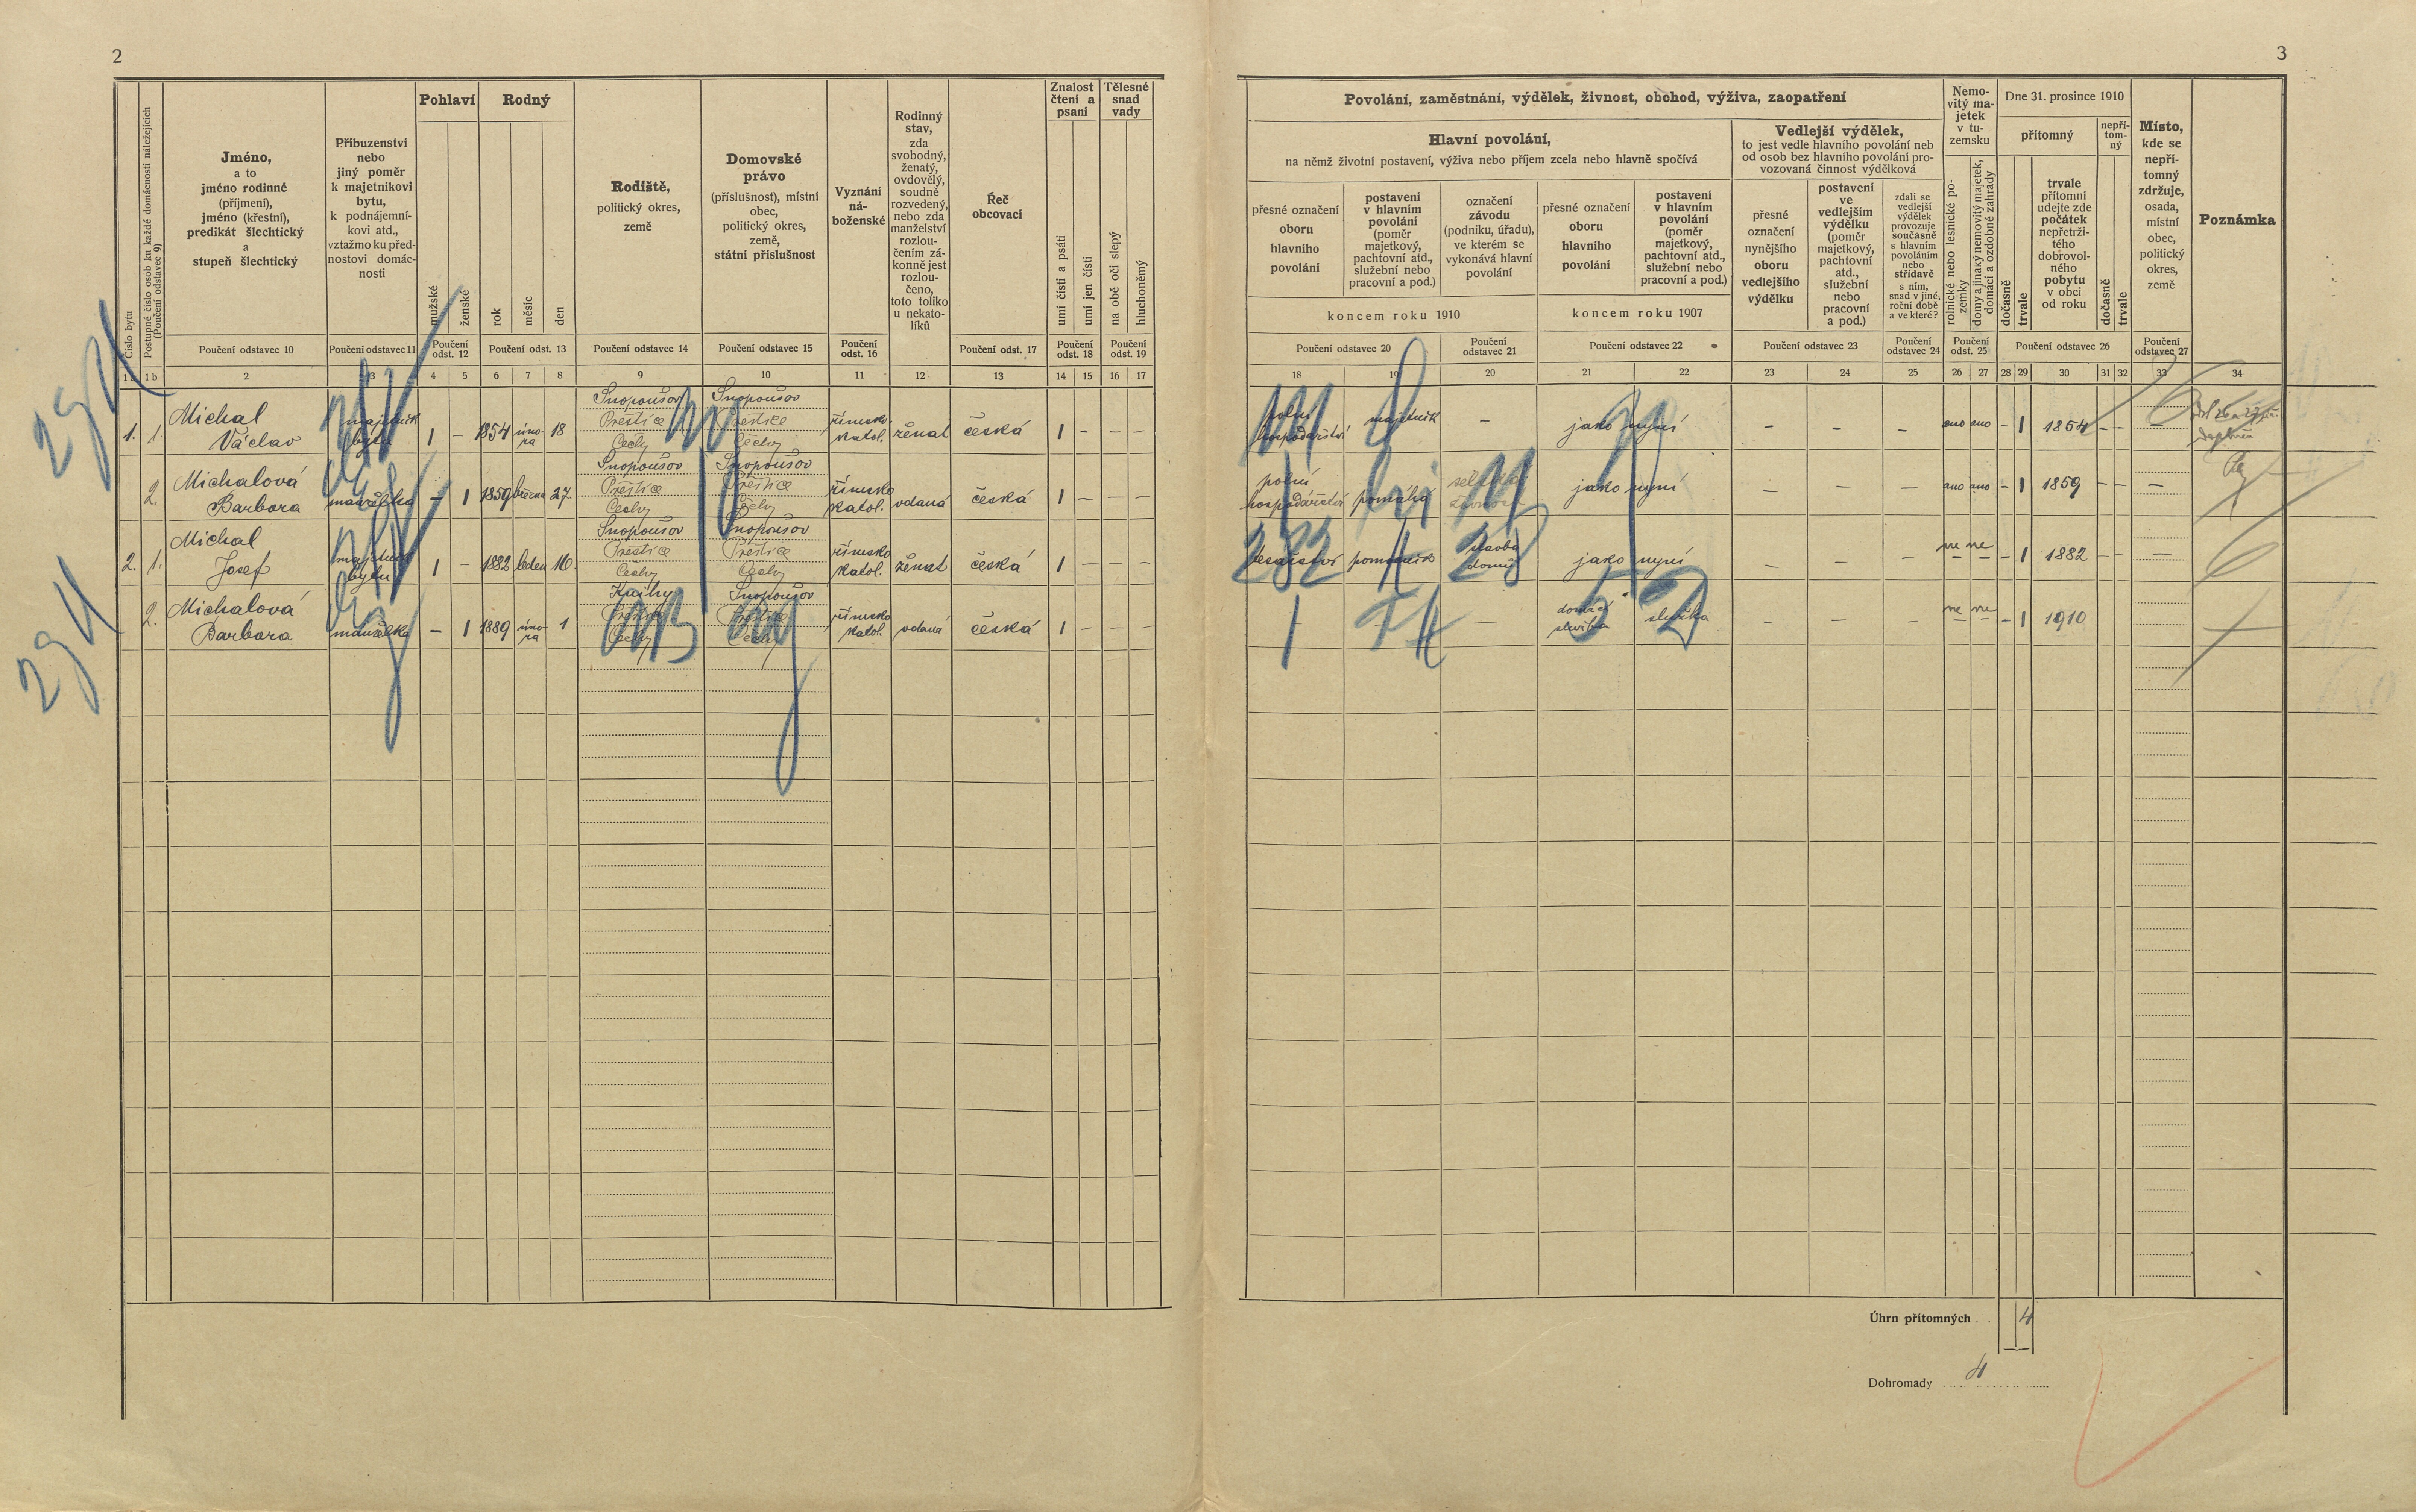 2
Pohlaví
Rodný
Znalost
čtení a
psaní
Tělesné
snad
vady
Číslo bytu
Postupné číslo osob ku každé domácnosti náležejících
(Poučení odstavec 9)
Jméno,
a to
jméno rodinné
(příjmení),
jméno (křestní),
predikát šlechtický
a
stupeň šlechtický
Příbuzenství
nebo
jiný poměr
k majetníkovi
bytu,
k podnájemní-
kovi atd.,
vztažmo ku před-
nostovi domác-
nosti
mužské
ženské
rok
měsíc
den
Rodiště,
politický okres,
země
Domovské
právo
(příslušnost), místní
obec,
politický okres,
země,
státní příslušnost
Vyznání
ná-
boženské
Rodinný
stav,
zda
svobodný,
ženatý,
ovdovělý,
soudně
rozvedený,
nebo zda
manželství
rozlou-
čením zá-
konně jest
rozlou-
čeno,
toto toliko
u nekato-
líků
Řeč
obcovací
umí čísti a psáti
umí jen čísti
na obě oči slepý
hluchoněmý
Poučení odstavec 10
Poučení odstavec 11
Poučení
odst. 12
Poučení odst. 13
Poučení odstavec 14
Poučení odstavec 15
Poučení
odst. 16
Poučení odst. 17
Poučení
odst. 18
Poučení
odst. 19
1 b 2 3 4 5 6 7 8 9 10 11 12 13 14 15 16 17
1. 1. Michal
Václav
majetník
bytu
1 – 1854 úno-
ra 18
Snopoušov
Přeštice
Čechy
Snopoušov
Přeštice
Čechy
římsko
katol.
ženat
česká
1 – – –
2. Michalová
Barbora
manželka
– 1 1859 března 27.
Snopoušov
Přeštice
Čechy
Snopoušov
Přeštice
Čechy
římsko
katol.
vdaná
česká
1 – – –
2. 1. Michal
Josef
majetník
bytu
1 – 1882 leden 16.
Snopoušov
Přeštice
Čechy
Snopoušov
Přeštice
Čechy
římsko
katol.
ženat
česká
1 – – –
2. Michalová
Barbora
manželka
– 1 1889 úno-
ra 1
Přeštice
Čechy
Snopoušov
Přeštice
Čechy
římsko
katol.
vdaná
česká
1 – – –
3
Povolání, zaměstnání, výdělek, živnost, obchod, výživa, zaopatření
Nemo-
vitý ma-
jetek
v tu-
zemsku
Dne 31. prosince 1910
přítomný
nepří-
tom-
ný
Místo,
kde se
nepří-
tomný
zdržuje,
osada,
místní
obec,
politický
okres,
země
Poznámka
Hlavní povolání,
na němž životní postavení, výživa nebo příjem zcela nebo hlavně spočívá
Vedlejší výdělek,
to jest vedle hlavního povolání neb
od osob bez hlavního povolání pro-
vozovaná činnost výdělková
přesné označení
oboru
hlavního
povolání
postavení
v hlavním
povolání
(poměr
majetkový,
pachtovní atd.,
služební nebo
pracovní a pod.)
označení
závodu
(podniku, úřadu),
ve kterém se
vykonává hlavní
povolání
přesné označení
oboru
hlavního
povolání
postavení
v hlavním
povolání
(poměr
majetkový,
pachtovní atd.,
služební nebo
pracovní a pod.)
koncem roku 1910
koncem roku 1907
přesné
označení
nynějšího
oboru
vedlejšího
výdělku
postavení
ve
vedlejším
výdělku
(poměr
majetkový,
pachtovní
atd.,
služební
nebo
pracovní
a pod.)
zdali se
vedlejší
výdělek
provozuje
současně
s hlavním
povoláním
nebo
střídavě
s ním,
snad v jiné
roční době
a ve které?
rolnické nebo lesnické po-
zemky
domy a jinaký nemovitý majetek,
domácí a ozdobné zahrady
dočasně
trvale
trvale
přítomní
udejte zde
počátek
nepřetrži-
tého
dobrovol-
ného
pobytu
v obci
od roku
dočasně
trvale
Poučení odstavec 20
Poučení
odstavec 21
Poučení odstavec 22
Poučení odstavec 23
Poučení
odstavec 24
Poučení
odst. 25
Poučení odstavec 26
Poučení
odstavec 27
18 19 20 21 22 23 24 25 26 27 28 29 30 31 32 33 34
polní
hospodářství
majetník
–
jako nyní
– – –
ano ano – 1 1854 – –
polní
hospodářství
pomáhá
jako nyní
– – –
ano ano – 1 1859 – – –
tesařství
pomocník
stavba
domů
jako nyní
– – –
ne ne – 1 1882 – – –
–
domácí
služba
služka
– – –
ne ne – 1 1910
Úhrn přítomných . . 4
Dohromady 4